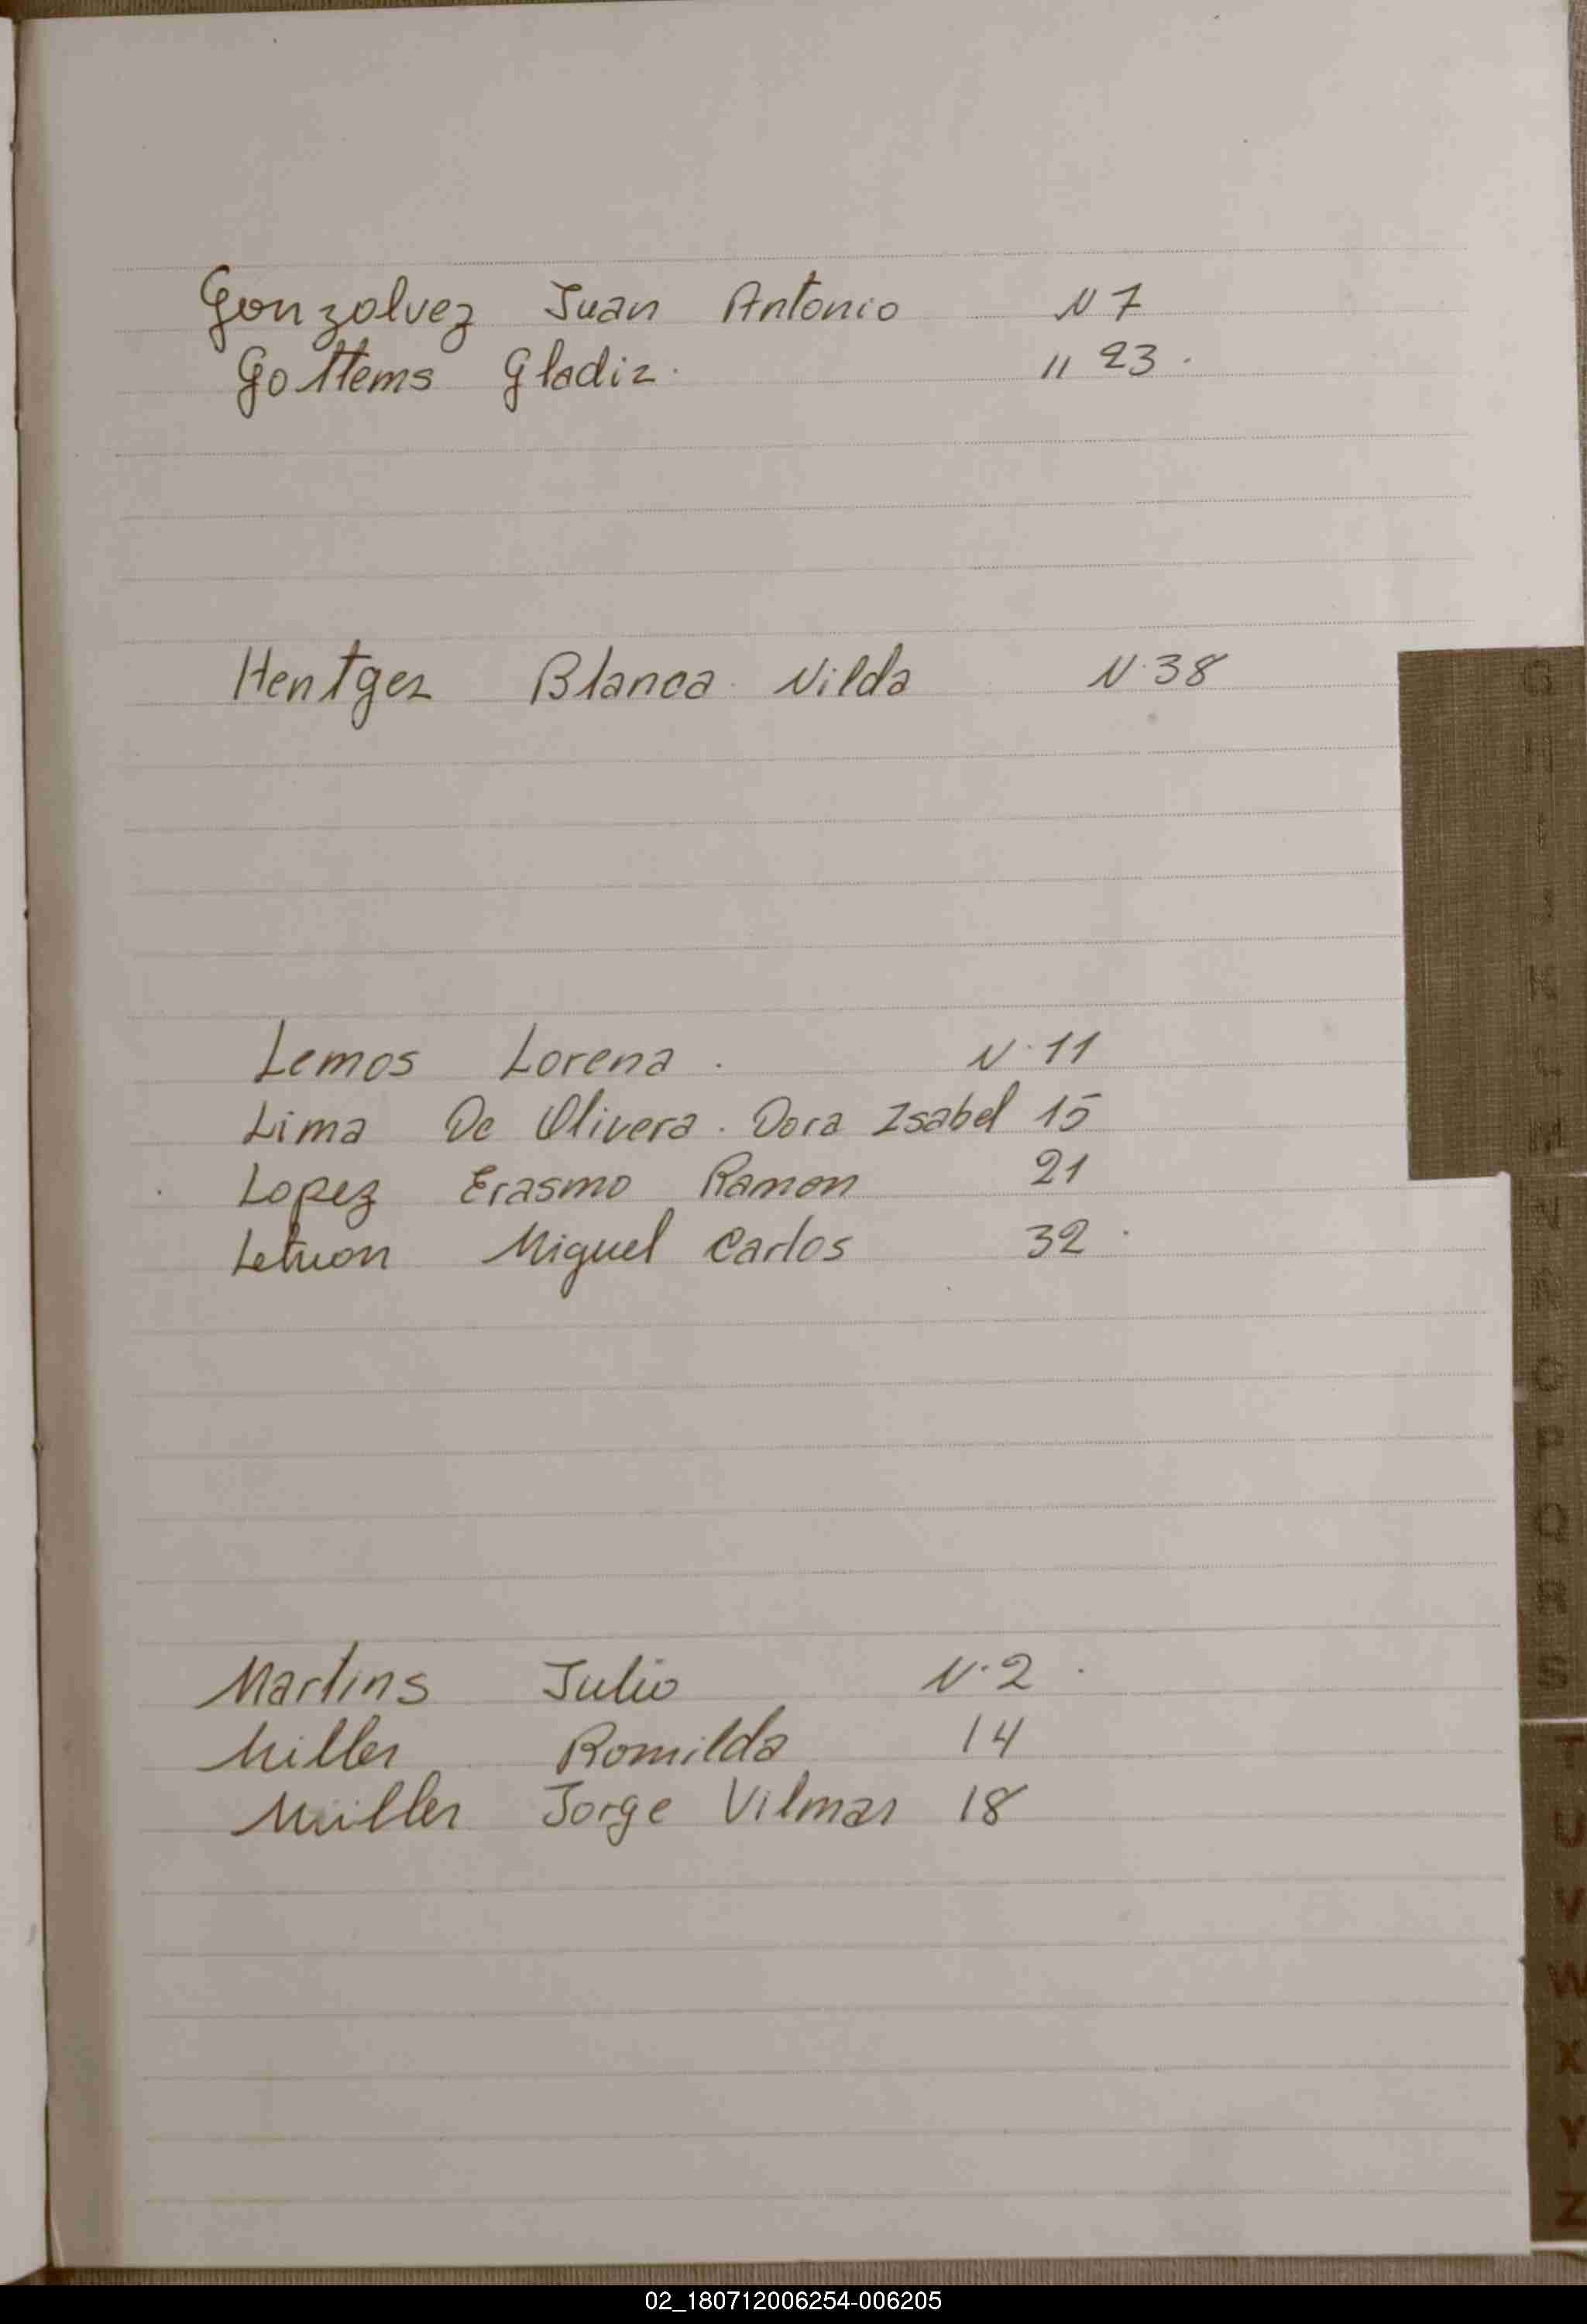 Gonzolvez Juan Antonio N 7
Gottems Gladiz. " 23.
Hentges Blanca Nilda N. 38
Lemos Lorena. N. 11
Lima De Olivera. Dora Isabel 15
Lopez Erasmo Ramon 21
Miguel Carlos 32.
Martins Julio N. 2.
Miller Romilda 14
Müller Jorge Vilmar 18
G
H
I
J
K
L
M
N
O
P
Q
R
S
T
U
V
W
X
Y
Z
02_180712006254-006205